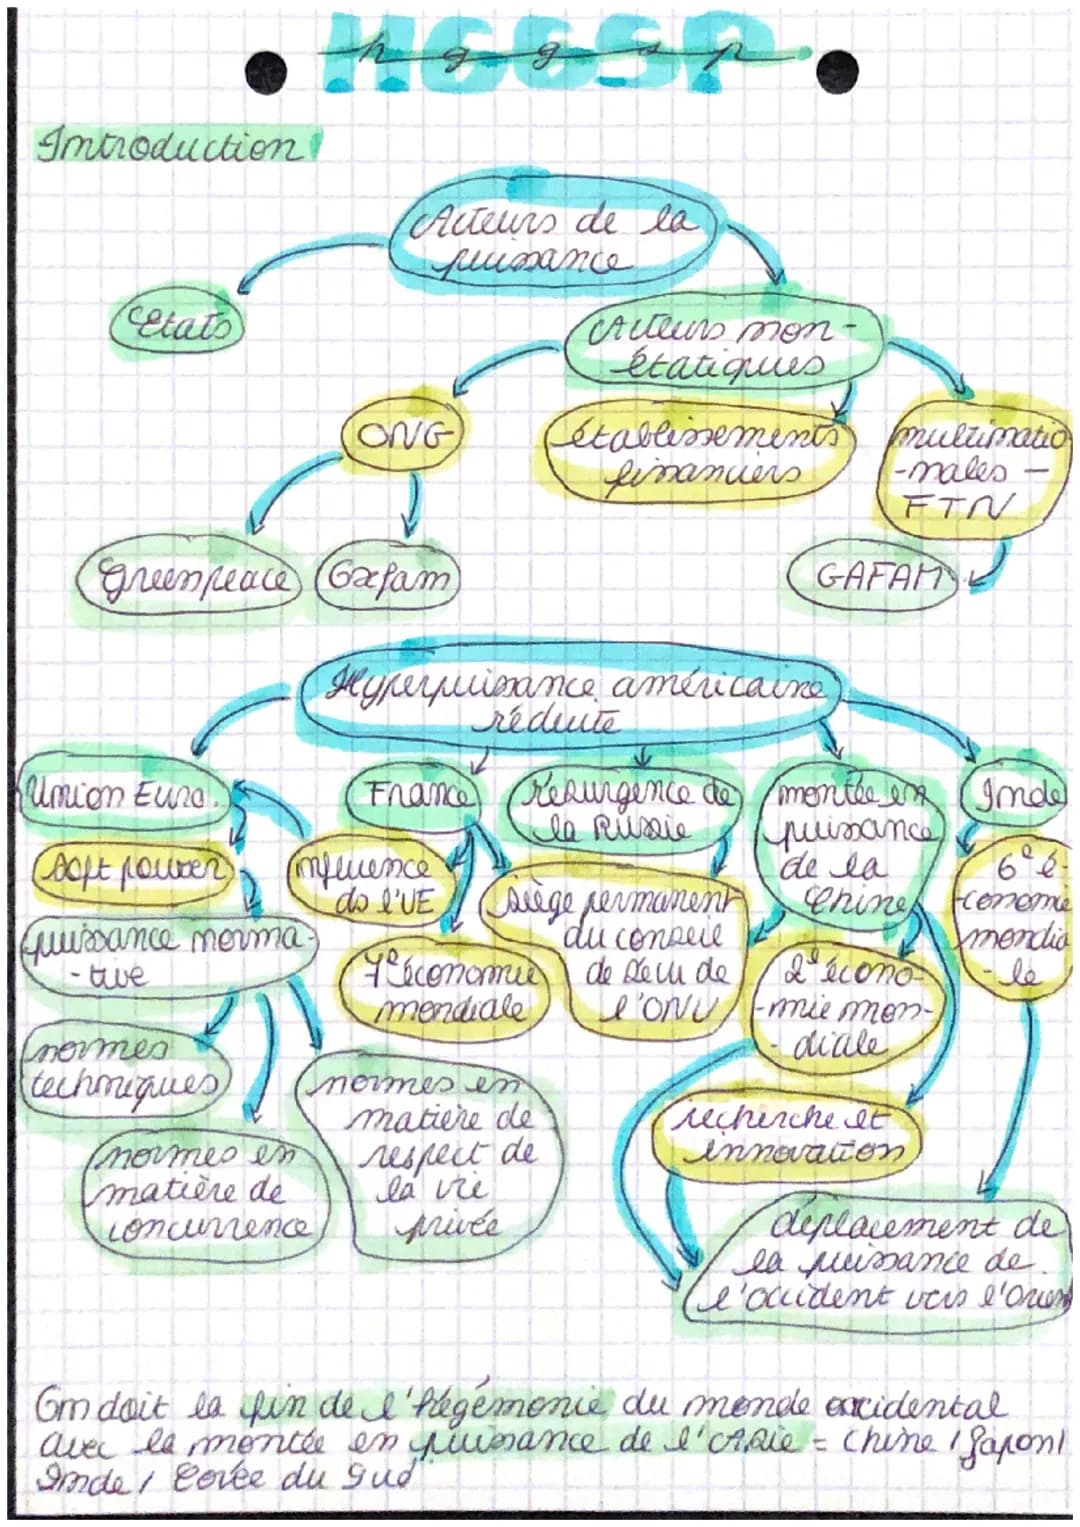 HGGSP
hggsp
Introduction
Acteurs de la
puissance
Etats
Acteurs non-
étatiques
ONG
établissements
financiers
multinatio
-nales -
FTN
Greenpeace
Oxfam
GAFAM
Hyperpuissance américaine
réduite
Union Euro.
France
résurgence de
la Russie
montée en
puissance
de la
Chine
Inde
soft power
influence
ds l'UE
siège permanent
du conseil
de sécu de
l'ONU
6e é-
-conomie
mondia
-le
puissance norma-
-tive
7e économie
mondiale
2e écono-
-mie mon-
-diale
normes
techniques
normes en
matière de
respect de
la vie
privée
recherche et
innovation
normes en
matière de
concurrence
déplacement de
la puissance de
l'occident vers l'Orient
On doit la fin de l'hégémonie du monde occidental
avec la montée en puissance de l'Asie = Chine / Japon /
Inde / Corée du Sud